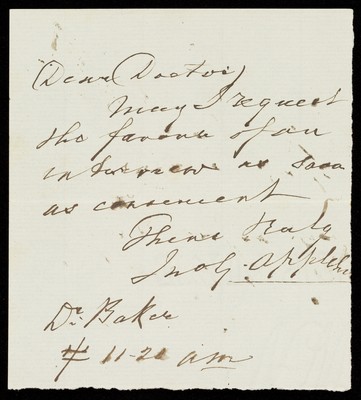 Dear Doctor,
May I request
the favour of an
interview as soon
as convenient
Thine Truly
Jno G. Appleb
Dr. Baker
11-20 am